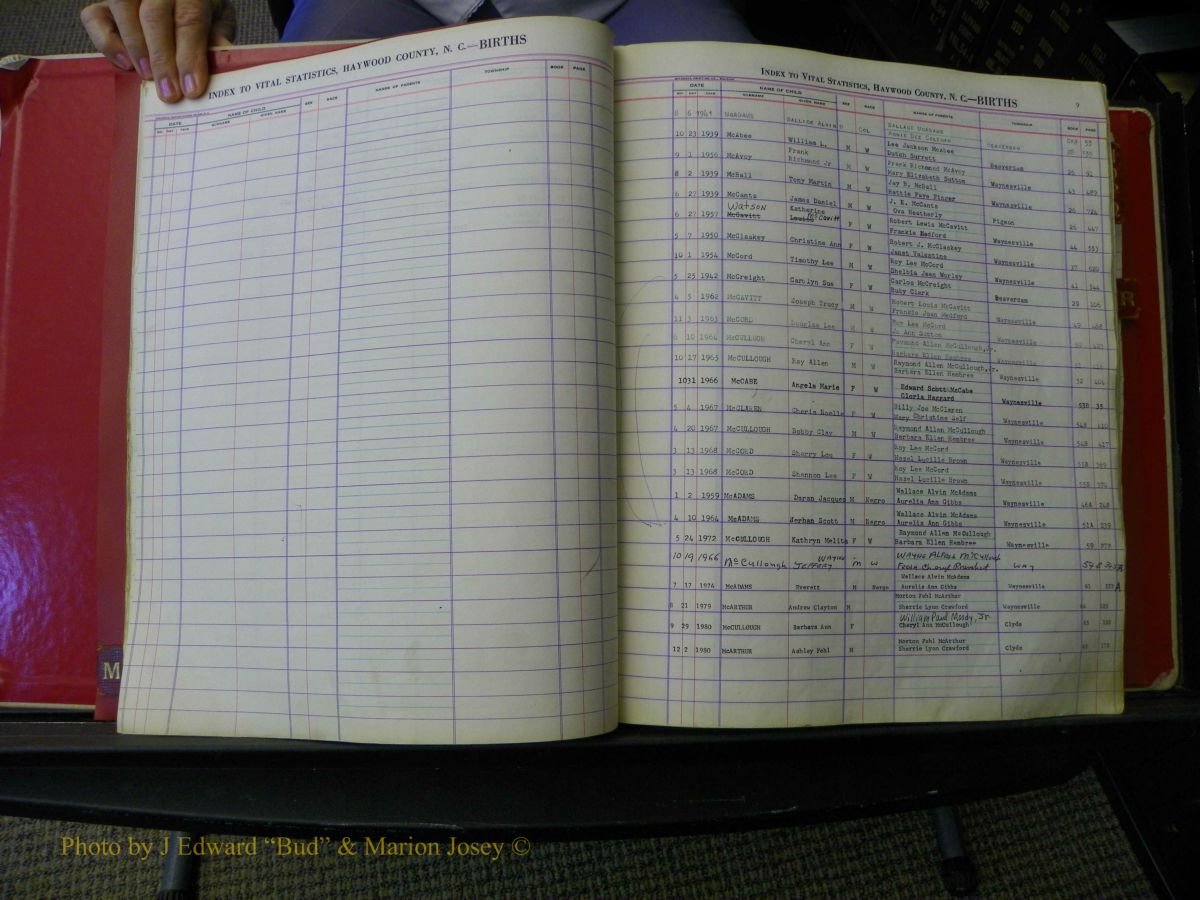 INDEX TO VITAL STATISTICS, HAYWOOD COUNTY, N. C.—BIRTHS
DATE NAME OF CHILD SEX RACE NAMES OF PARENTS TOWNSHIP BOOK PAGE
MO. DAY YEAR SURNAME GIVEN NAME
INDEX TO VITAL STATISTICS, HAYWOOD COUNTY, N. C.—BIRTHS
9
DATE NAME OF CHILD SEX RACE NAMES OF PARENTS TOWNSHIP BOOK PAGE
MO. DAY YEAR SURNAME GIVEN NAME
8 6 1941 McADAMS WALLACE ALVIN COL WALLACE McADAMS
10 23 1939 McAbee William L. M W Lee Jackson McAbee
Dutch Surrett Beaverdam
9 1 1956 McAvoy Frank M W Frank Richmond McAvoy
Richmond Jr Mary Elizabeth Sutton Waynesville
8 2 1939 McBall Tony Martin M W Jay B. McBall
Hattie Faye Finger Waynesville
6 27 1939 McCants James Daniel M W J. E. McCants
Ova Heatherly Pigeon
6 27 1957 Watson McGavitt Katherine Louise McCavitt F W Robert Lewis McCavitt
Frankie Medford Waynesville
5 7 1950 McClaskey Christine Ann F W Robert J. McClaskey
Janet Valentine Waynesville
10 1 1954 McCord Timothy Lee M W Roy Lee McCord
Shelbia Jean Worley Waynesville
5 25 1942 McCreight Carolyn Sue F W Carlos McCreight
Ruby Clark Beaverdam
4 5 1962 McCAVITT Joseph Tracy M W Robert Louis McCavitt
Frankie Joan Medford Waynesville
11 3 1963 McCORD Douglas Lee M W Roy Lee McCord
Jo Ann Sutton Waynesville
6 10 1964 McCULLOUGH Cheryl Ann F W Raymond Allen McCullough, Jr.
Barbara Ellen Hembree Waynesville
10 17 1965 McCULLOUGH Ray Allen M W Raymond Allen McCullough, Jr.
Barbara Ellen Hembree Waynesville 52 404
10 31 1966 McCABE Angela Marie F W Edward Scott McCabe
Gloria Haggard Waynesville 53B 35
5 4 1967 McCLAREN Cheris Noelle F W Billy Joe McClaren
Mary Christine Self Waynesville 54B 410
4 20 1967 McCULLOUGH Bobby Clay M W Raymond Allen McCullough
Barbara Ellen Hembree Waynesville 54B 417
3 13 1968 McCORD Sherry Lou F W Roy Lee McCord
Hazel Lucille Brown Waynesville 55B 369
3 13 1968 McCORD Shannon Lee F W Roy Lee McCord
Hazel Lucille Brown Waynesville 55B 370
1 2 1959 McADAMS Daran Jacques M Negro Wallace Alvin McAdams
Aurelia Ann Gibbs Waynesville 46A 248
4 10 1964 McADAMS Jerhan Scott M Negro Wallace Alvin McAdams
Aurelia Ann Gibbs Waynesville 51A 239
5 24 1972 McCULLOUGH Kathryn Melita F W Raymond Allen McCullough
Barbara Ellen Hembree Waynesville 59 379
10 19 1966 McCullough WAYNE JEFFERY m w WAYNE Alfred McCullough
Cheryl WAY
7 17 1974 McADAMS Everett M Negro Wallace Alvin McAdams
Aurelia Ann Gibbs Waynesville 61 A
8 21 1979 McARTHUR Andrew Clayton M Morton Pehl McArthur
Sherrie Lynn Crawford Waynesville
9 29 1980 McCULLOUGH Barbara Ann F William Paul Moody, Jr.
Cheryl Ann McCullough Clyde
12 2 1980 McARTHUR Ashley Pehl M Morton Pehl McArthur
Sherrie Lynn Crawford Clyde
M
R
Photo by J Edward “Bud” & Marion Josey ©